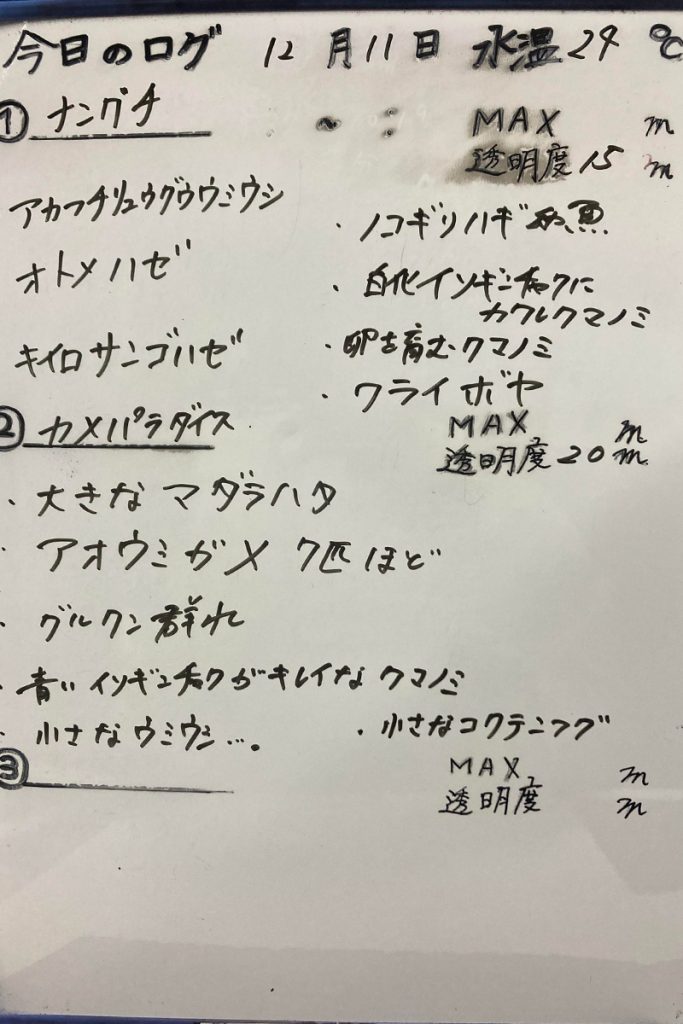 今日のログ 12月11日 水温24℃
① ナングチ
MAX m
透明度15m
アカフチリュウグウウミウシ
オトメハゼ
キイロサンゴハゼ
・ノコギリハギ 幼魚
・白化イソギンチャクに
カクレクマノミ
・卵を育むクマノミ
・ワライボヤ
② カメパラダイス
MAX m
透明度20m
・大きな マダラハタ
・アオウミガメ 7匹ほど
・グルクン群れ
・青いイソギンチャクがキレイな クマノミ
・小さなウミウシ…。
・小さなコクテンフグ
③
MAX m
透明度 m